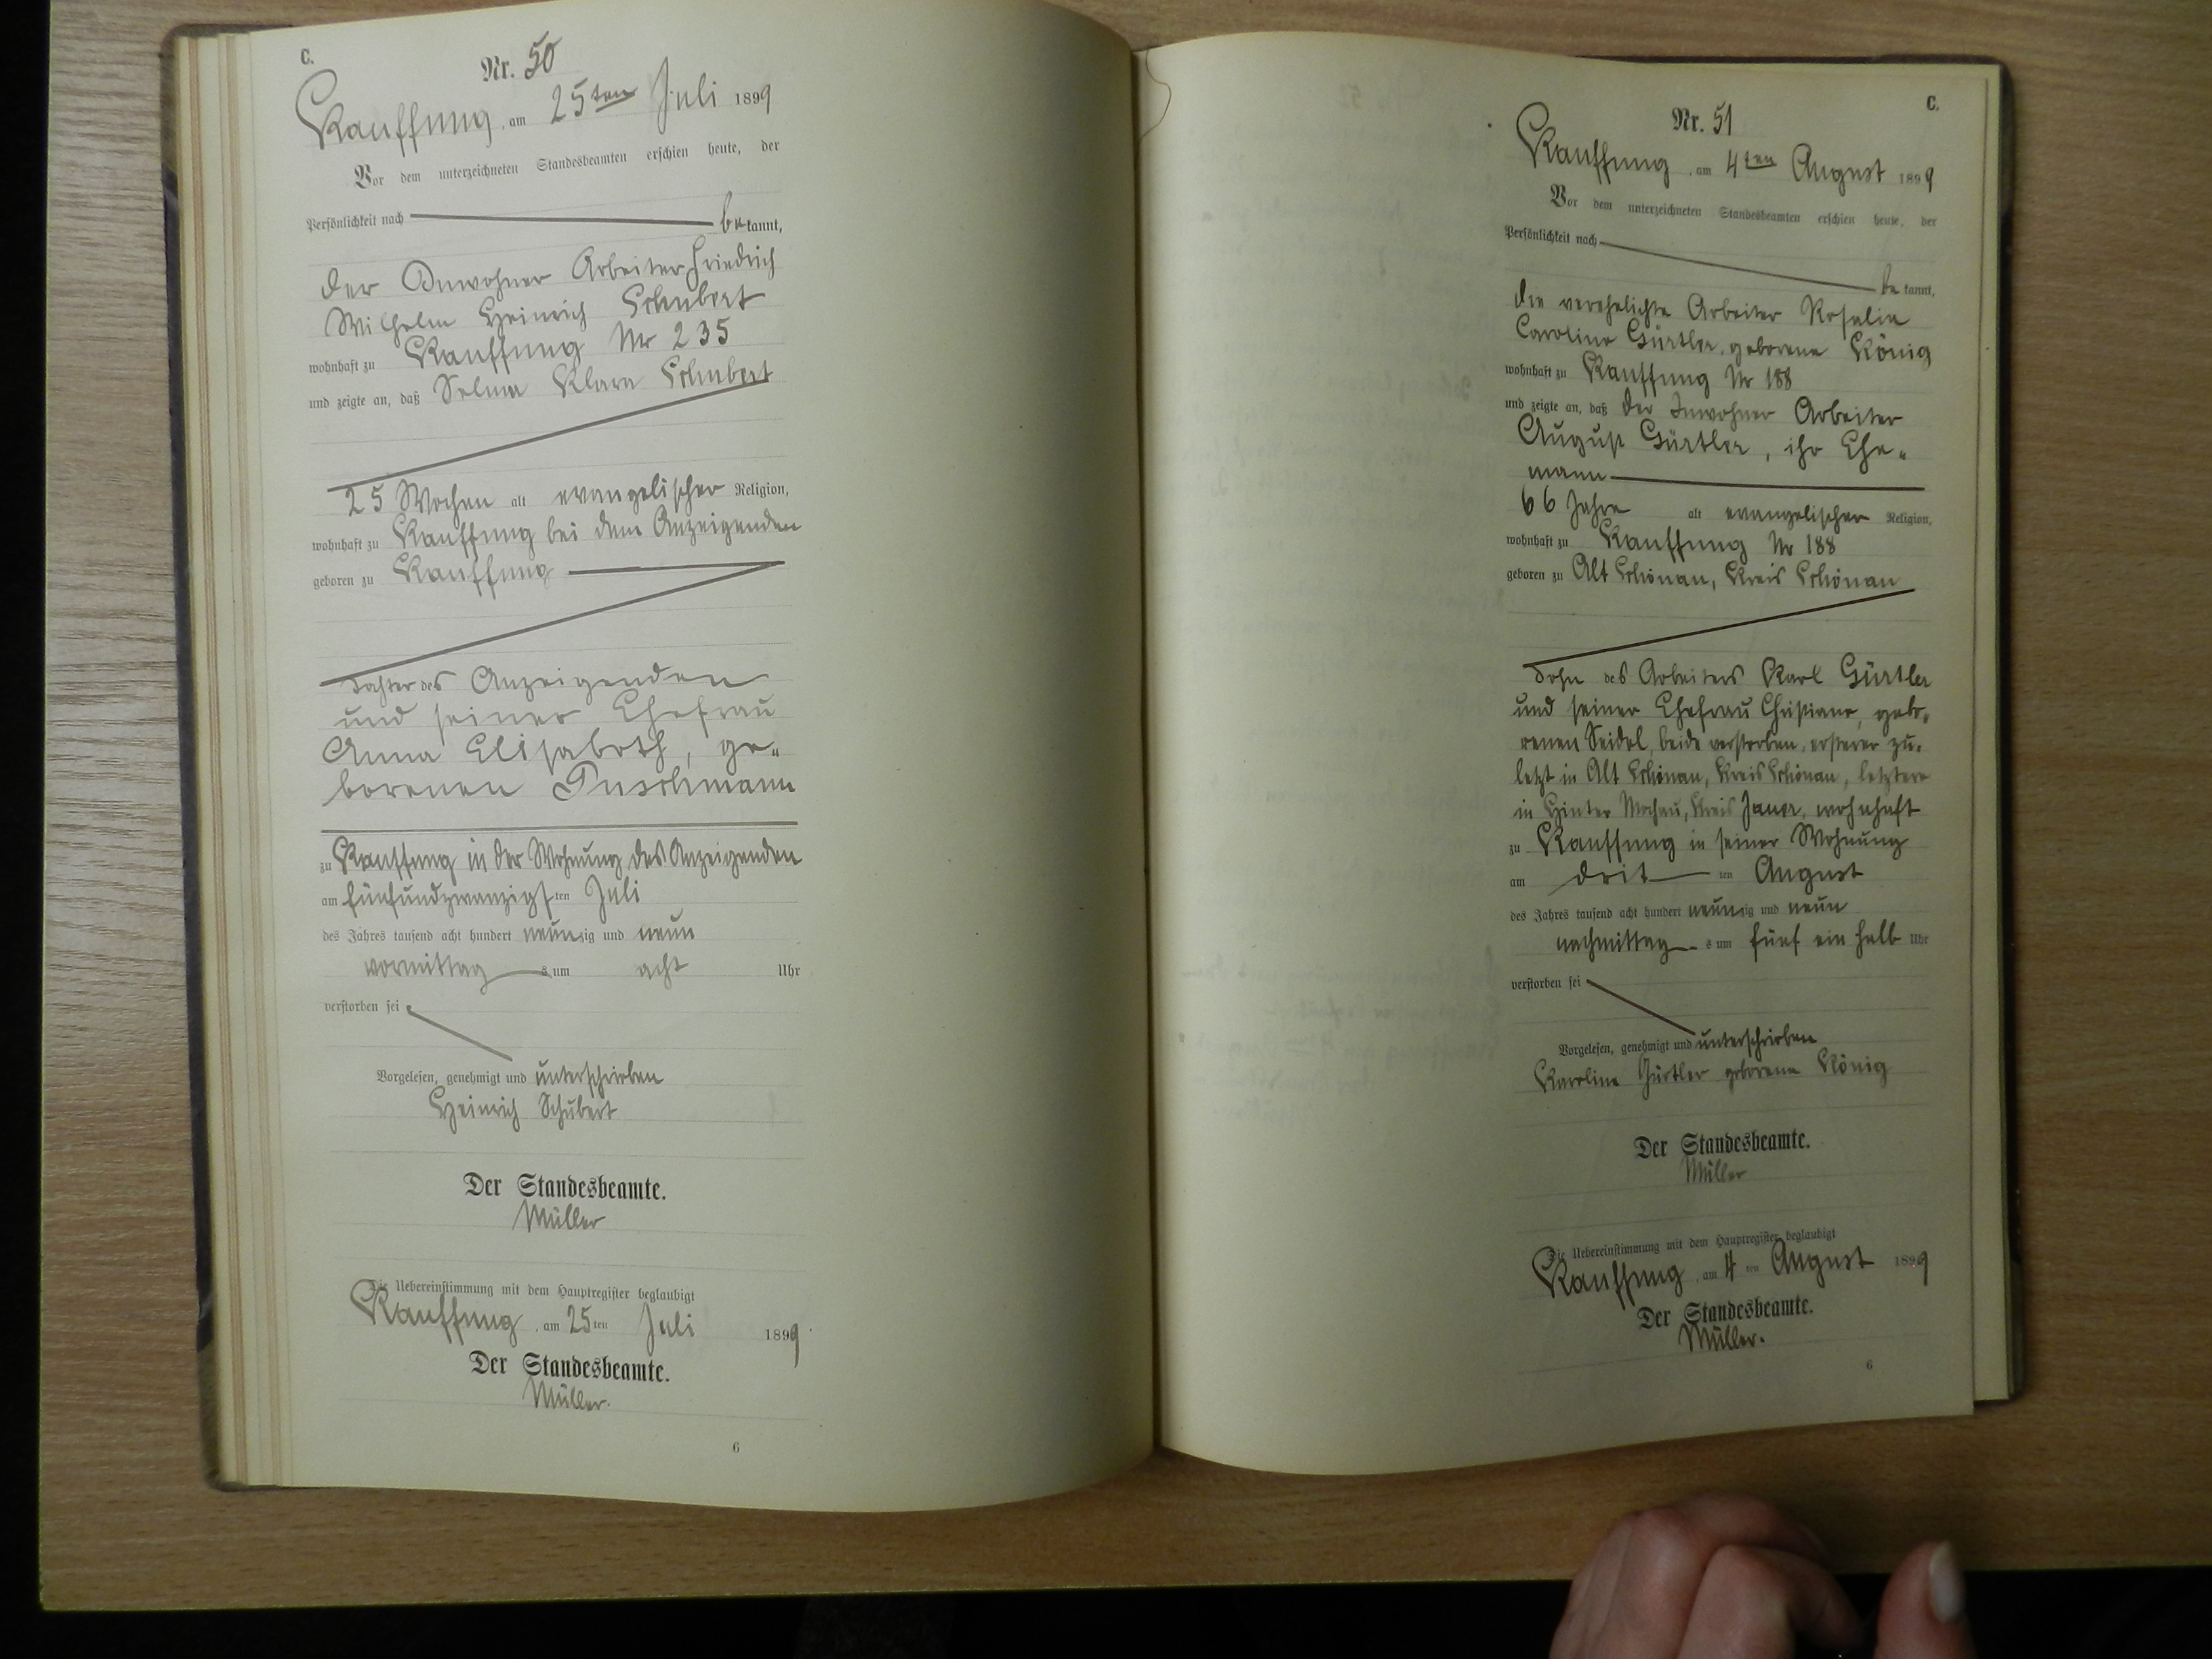 C.
Nr. 50
Kauffung, am 25ten Juli 1899
Vor dem unterzeichneten Standesbeamten erschien heute, der
Persönlichkeit nach bekannt,
der Inwohner Arbeiter Friedrich
Wilhelm Heinrich Schubert
wohnhaft zu Kauffung Nr 235
und zeigte an, daß Selma Klara Schubert
25 Wochen alt evangelischer Religion,
wohnhaft zu Kauffung bei dem Anzeigenden
geboren zu Kauffung
Tochter des Anzeigenden
und seiner Ehefrau
Anna Elisabeth, ge-
borenen Tuschmann
zu Kauffung in der Wohnung des Anzeigenden
am fünfundzwanzigsten Juli
des Jahres tausend acht hundert neunzig und neun
vormittags um acht Uhr
verstorben sei
Vorgelesen, genehmigt und unterschrieben
Heinrich Schubert
Der Standesbeamte.
Müller
Die Uebereinstimmung mit dem Hauptregister beglaubigt
Kauffung, am 25ten Juli 1899
Der Standesbeamte.
Müller.
6
C.
Nr. 51
Kauffung, am 4ten August 1899
Vor dem unterzeichneten Standesbeamten erschien heute, der
Persönlichkeit nach
bekannt,
die verehelichte Arbeiter Rosalie
Caroline Gürtler, geborene König
wohnhaft zu Kauffung Nr 188
und zeigte an, daß der Inwohner Arbeiter
August Gürtler, ihr Ehe-
mann
66 Jahre alt evangelischer Religion,
wohnhaft zu Kauffung Nr 188
geboren zu Alt Schönau, Kreis Schönau
Sohn des Arbeiters Karl Gürtler
und seiner Ehefrau Christiane, gebo-
renen Seidel, beide verstorben, ersterer zu-
letzt in Alt Schönau, Kreis Schönau, letztere
in Hinter Mochau, Kreis Jauer, wohnhaft
zu Kauffung in seiner Wohnung
am dritten August
des Jahres tausend acht hundert neunzig und neun
nachmittags um fünf ein halb Uhr
verstorben sei
Vorgelesen, genehmigt und unterschrieben
Karoline Gürtler geborene König
Der Standesbeamte.
Müller
Die Uebereinstimmung mit dem Hauptregister beglaubigt
Kauffung, am 4ten August 1899
Der Standesbeamte.
Müller.
6